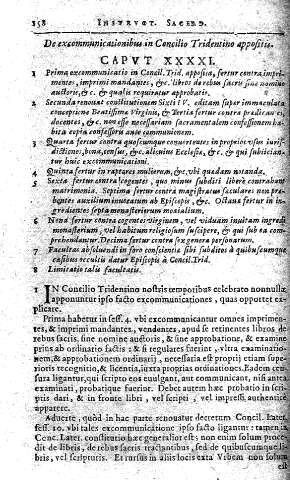 358 INSTRVCT. SACERD.
De excommunicationibus in Concilio Tridentino appositis.
CAPVT XXXXI.
1 Prima excommunicatio in Concil. Trid. apposita, fertur contra imprimentes, imprimi mandantes, &c. libros de rebus sacris sine nomine
auctoris, &c. & qualis requiratur approbatio.
2 Secunda renouat constitutionem Sixti IV. editam super immaculata
conceptione Beatissima Virginis, & Tertia fertur contra predicantes,
docentes, &c. non esse necessariam sacramentalem confessionem habita copia confessoris ante communionem.
3 Quarta fertur contra quoscumque conuertentes in proprios vsus iurisdictiones, bona, census, &c. alicuius Ecclesiæ, &c. qui subiiciantur huic excommunicationi.
4 Quinta fertur in raptores mulierum, &c. vbi quadam notanda.
5 Sexta fertur contra cogentes, quo minus subditi liberè contrahant
matrimonia. Septima fertur contra magistratus seculares non prebentes auxilium inuocatum ab Episcopis, &c. Octaua fertur in ingredientes septa monasterij monialium.
6 Nona fertur contra cogentes virginem, vel viduam inuitam ingredi
monasterium, vel habitum religiosum suscipere, & qui sub ea comprehendantur. Decima fertur contra sex genera personarum.
7 Facultas absoluendi in foro conscientiæ sibi subditos à quibuscumque
casibus occultis datur Episcopis à Concil. Trid.
8 Limitatio talis facultatis.
1 IN Concilio Tridentino nostris temporibus celebrato nonnullæ
apponuntur ipso facto excommunicationes, quas oportet explicare.
Prima habetur in sess. 4. vbi excommunicantur omnes imprimentes, & imprimi mandantes, vendentes, apud se retinentes libros de
rebus sacris, sine nomine auctoris, & sine approbatione, & examine
prius ab ordinario factis: & si regulares fuerint, vltra examinationem, & approbationem ordinarij, necessaria est proprij etiam superioris recognitio, & licentia, iuxta proprias ordinationes. Eadem censura ligantur, qui scripto eos euulgant, aut communicant, nisi antea
examinati, probatique fuerint. Debet autem hæc probatio in scriptis dari, & in fronte libri, vel scripti, vel impressi, authenticè
apparere.
Aduerte, quòd in hac parte renouatur decretum Concil. Later.
sess. 10. vbi tales excommunicatione ipso facto ligantur: tamen in
Conc. Later. constitutio hæc generalior est: non enim solùm procedit de libris, de rebus sacris tractantibus, sed de quibuscumque libris, vel scripturis. Et rursus in aliis locis extra Vrbem non solùm